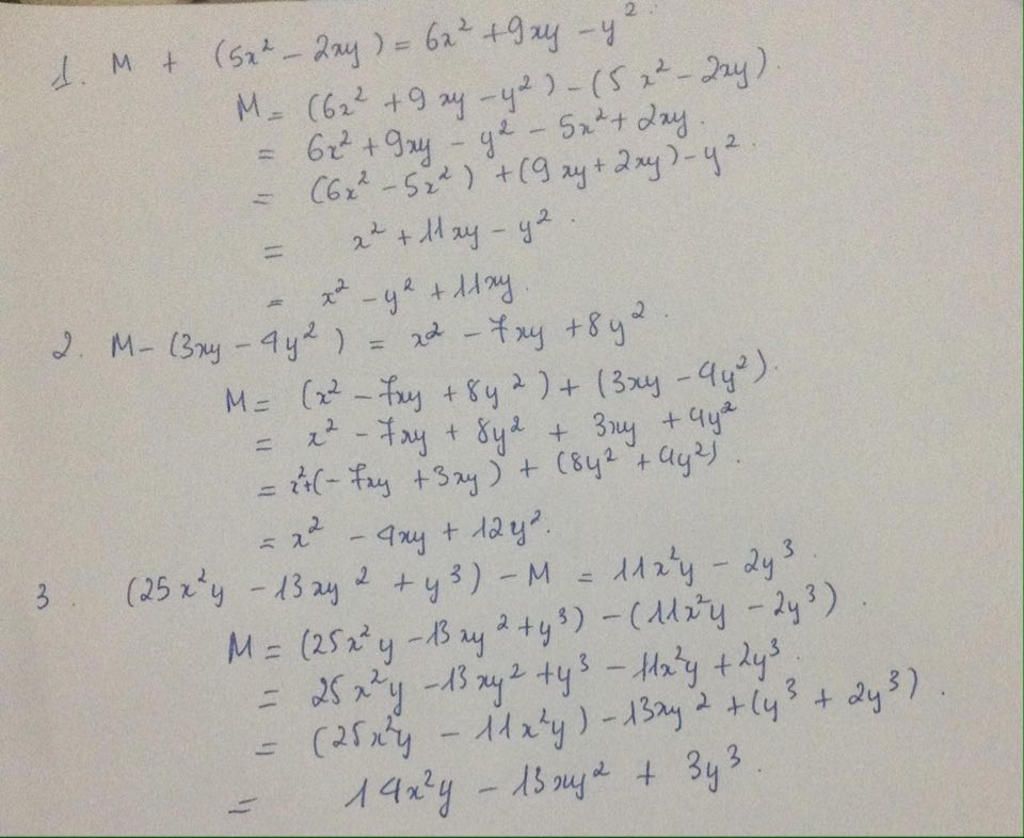 1. M + (5x² - 2xy) = 6x² + 9xy - y².
M = (6x² + 9xy - y²) - (5x² - 2xy).
= 6x² + 9xy - y² - 5x² + 2xy.
= (6x² - 5x²) + (9xy + 2xy) - y².
= x² + 11xy - y².
= x² - y² + 11xy.
2. M - (3xy - 4y²) = x² - 7xy + 8y².
M = (x² - 7xy + 8y²) + (3xy - 4y²).
= x² - 7xy + 8y² + 3xy + 4y²
= x² + (-7xy + 3xy) + (8y² + 4y²).
= x² - 4xy + 12y².
3. (25x²y - 13xy² + y³) - M = 11x²y - 2y³.
M = (25x²y - 13xy² + y³) - (11x²y - 2y³).
= 25x²y - 13xy² + y³ - 11x²y + 2y³.
= (25x²y - 11x²y) - 13xy² + (y³ + 2y³).
= 14x²y - 13xy² + 3y³.